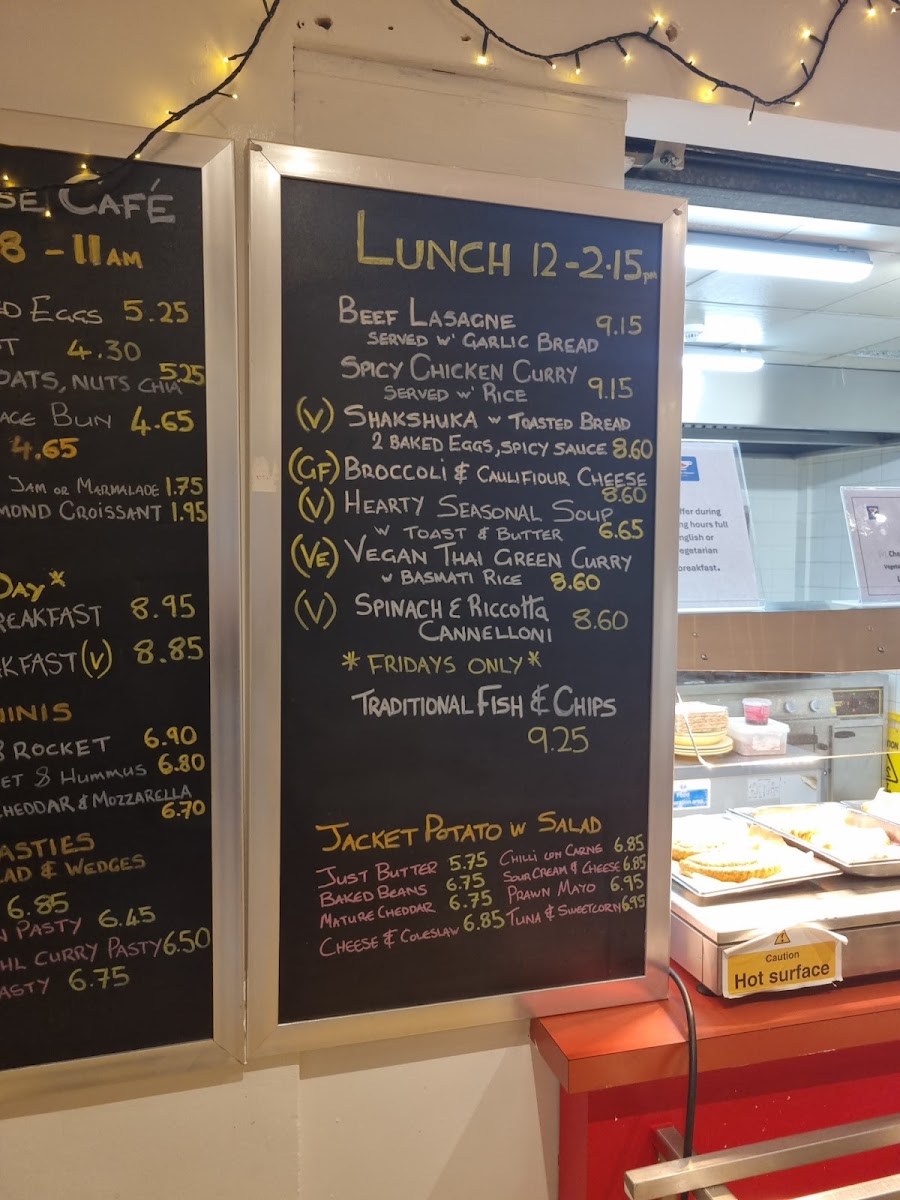 SE CAFÉ
8 - 11AM
ED EGGS 5.25
T 4.30
OATS, NUTS CHIA 5.25
AGE BUN 4.65
4.65
JAM OR MARMALADE 1.75
MOND CROISSANT 1.95
DAY*
REAKFAST 8.95
KFAST (V) 8.85
INIS
& ROCKET 6.90
ET & HUMMUS 6.80
CHEDDAR & MOZZARELLA
6.70
ASTIES
LAD & WEDGES
6.85
N PASTY 6.45
HL CURRY PASTY 6.50
ASTY 6.75
LUNCH 12-2.15pm
BEEF LASAGNE 9.15
SERVED W' GARLIC BREAD
SPICY CHICKEN CURRY
SERVED W' RICE 9.15
(V) SHAKSHUKA W TOASTED BREAD
2 BAKED EGGS, SPICY SAUCE 8.60
(GF) BROCCOLI & CAULIFIOUR CHEESE
8.60
(V) HEARTY SEASONAL SOUP
W TOAST & BUTTER 6.65
(VE) VEGAN THAI GREEN CURRY
W BASMATI RICE 8.60
(V) SPINACH & RICCOTTA
CANNELLONI 8.60
*FRIDAYS ONLY*
TRADITIONAL FISH & CHIPS
9.25
JACKET POTATO W SALAD
JUST BUTTER 5.75
BAKED BEANS 6.75
MATURE CHEDDAR 6.75
CHEESE & COLESLAW 6.85
CHILLI CON CARNE 6.85
SOUR CREAM & CHEESE 6.85
PRAWN MAYO 6.95
TUNA & SWEETCORN 6.95
ffer during
ng hours full
nglish or
egetarian
breakfast.
Che
Vegeta
Caution
Hot surface